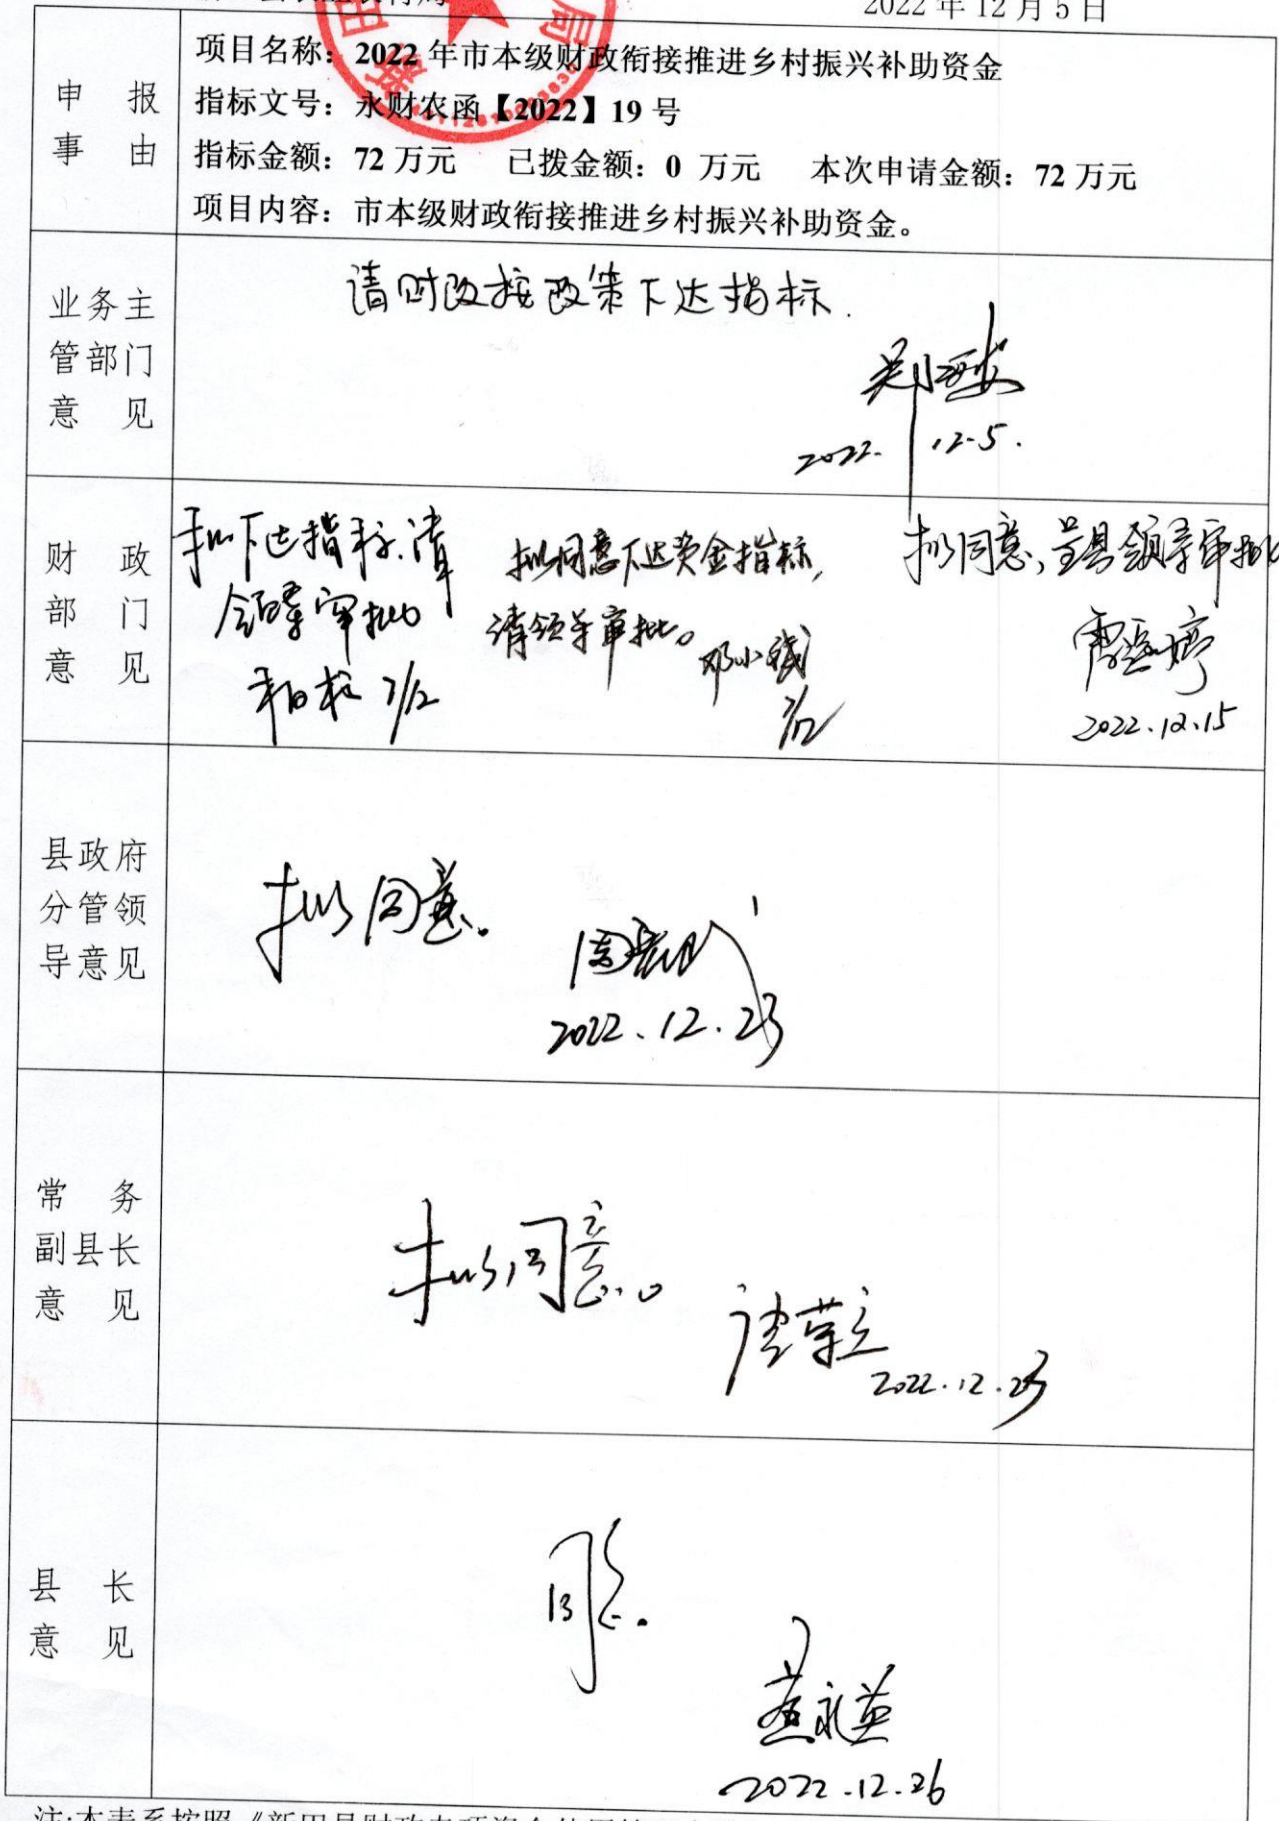 2022 年 12 月 5 日
田
局
新
申 报
事 由
项目名称：2022 年市本级财政衔接推进乡村振兴补助资金
指标文号：永财农函【2022】19 号
指标金额：72 万元 已拨金额：0 万元 本次申请金额：72 万元
项目内容：市本级财政衔接推进乡村振兴补助资金。
业务主
管部门
意 见
请财政按政策下达指标.
2022. 12.5.
财 政
部 门
意 见
拟下达指标.请
领导审批
7/12
拟同意下达资金指标,
请领导审批。
邓小
拟同意,呈县领导审批
2022.12.15
县政府
分管领
导意见
拟同意.
2022.12.23
常 务
副县长
意 见
拟同意。
唐荣立
2022.12.23
县 长
意 见
同意.
2022.12.26